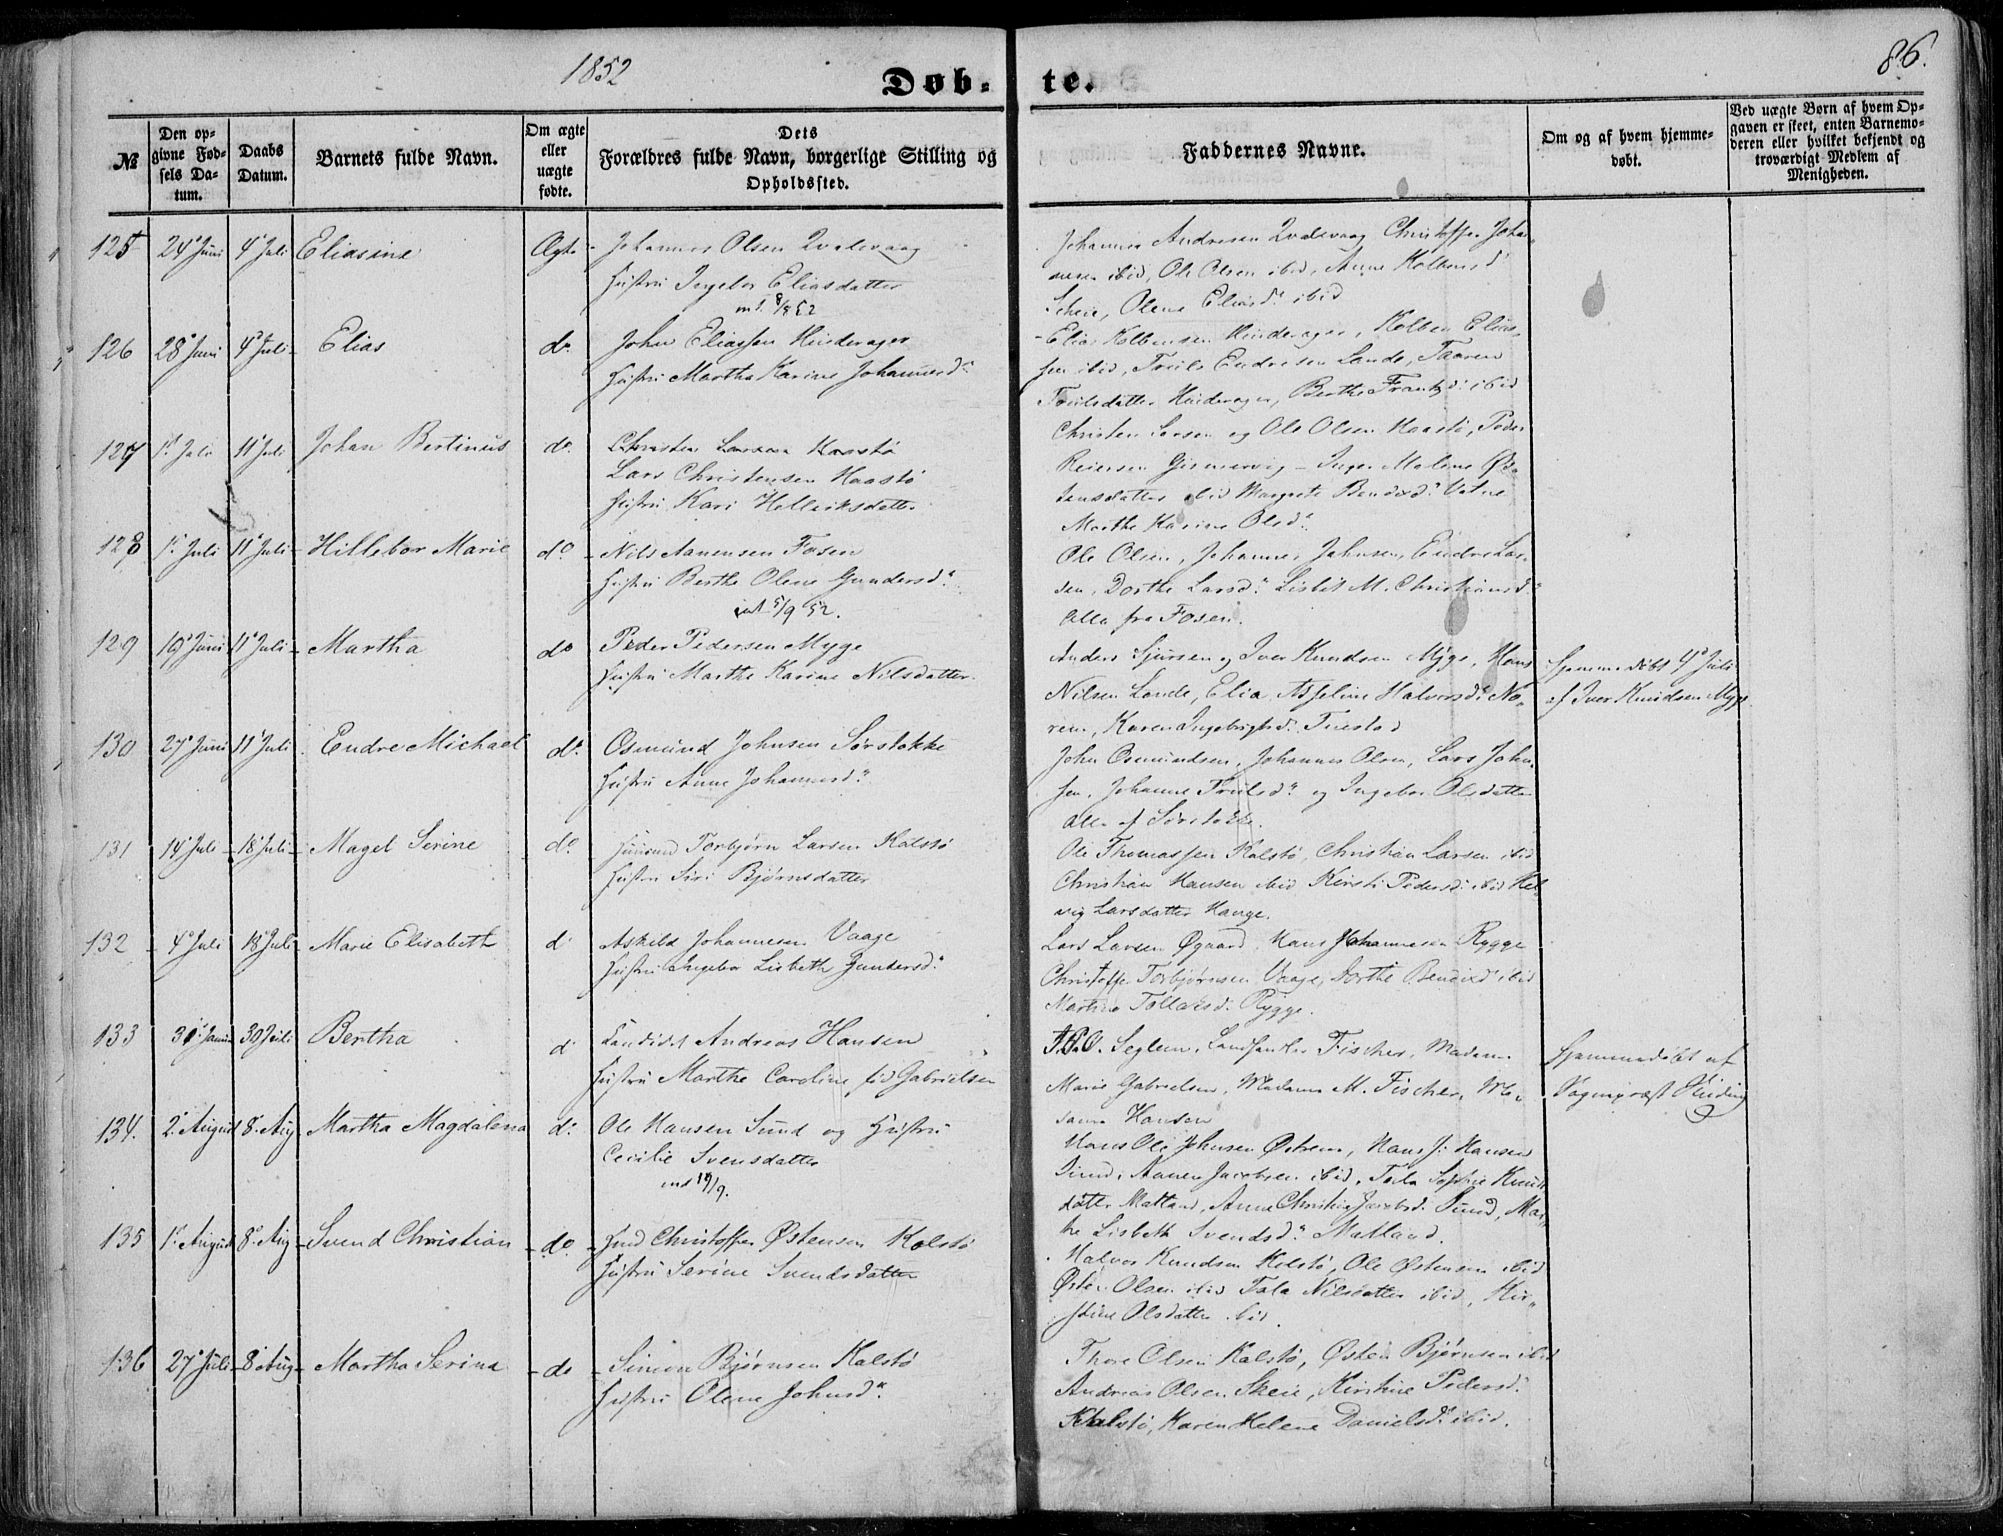 1852
86.
Døb-
te.
№
Den opgivne Fødsels Datum.
Daabs Datum.
Barnets fulde Navn.
Om ægte eller uægte fødte.
Dets Forældres fulde Navn, borgerlige Stilling og Opholdssted.
Faddernes Navne.
Om og af hvem hjemmedøbt.
Ved uægte Børn af hvem Opgaven er skeet, enten Barnemoderen eller hvilket bekjendt og troværdigt Medlem af Menigheden.
125 24 Juni 4 Juli Eliasine Ægte Johannes Olsen Qvalevaag
Hustru Ingebor Eliasdatter
int. 8/8 52
Johannes Andresen Qvalevaag Christoffer Johan-
nesen ibid, Ole Olsen ibid, Anne Kolbensd
Scheie, Olene Eliasd. ibid
126 28 Juni 4 Juli Elias do John Eliassen Hinderager
Hustru Martha Karine Johannesdr
Elias Kolbensen Hinderager, Kolben Elias-
sen ibid, Truls Endresen Lande, Taaren
Trulsdatter Hinderager, Berthe Frantzd. ibid
127 1 Juli 11 Juli Johan Bertinus do Christen Larsen Haastø
Lars Christensen Haastø
Hustru Kari Helleiksdatter
Christen Larsen og Ole Olsen Haastø, Peder
Reiersen Gismervig - Inger Malene Øs-
tensdatter ibid Margrete Bendixd. Vatne
Marthe Karine Olsdr
128 1 Juli 11 Juli Hillebor Marie do Nils Aanensen Fosen
Hustru Berthe Olene Gundersdr
int 5/9 52.
Ole Olsen, Johannes Johnsen, Endre Lar-
sen, Dorthe Larsdr Lisbet M. Christiansd
Alle fra Fosen.
129 19 Juni 11 Juli Martha do Peder Pedersen Myge
Hustru Marthe Karine Nilsdatter
Anders Sjursen og Iver Knudsen Myge, Hans
Nilsen Lande, Elia Asseline Halvorsd. No-
rem, Karen Ingebrigtsd. Tuestad
Hjemmedøbt 4 Juli
af Iver Knudsen Myge
130 27 Juni 11 Juli Endre Michael do Osmund Johnsen Sørstokke
Hustru Anne Johannesdr
John Osmundsen, Johannes Olsen, Lars John-
sen, Johanne Trulsdr og Ingebor Olsdatter
alle af Sørstokke.
131 14 Juli 18 Juli Magel Serine do Huusmd Torbjørn Larsen Kalstø
Hustru Siri Bjørnsdatter
Ole Thomassen Kalstø, Christian Larsen ibid
Christian Hansen ibid Kirsti Pedersd. ibid Hel-
vig Larsdatter Hauge.
132 4 Juli 18 Juli Marie Elisabeth d Askild Johannesen Vaage
Hustru Ingebor Lisbeth Gundersd.
Lars Larsen Øgaard, Hans Johannesen Rygge
Christoffer Torbjørnsen Vaage, Dorthe Bendixd ibid
Martine Tollaksd. Rygge.
133 31 Januar 30 Juli Bertha d Landidet Andreas Hansen
Hustru Marthe Caroline fød Gabrielsen
Seglem, Landhandler Fischer, Madame
Marie Gabrielsen, Madame M. Fischer, Ma-
dame Hansen
Hjemmedøbt af
Vognpræst Huiding
134. 2 August 8. Aug Martha Magdalena do Ole Hansen Sund og Hustru
Cecilie Svensdatter
int 19/9.
Hans Ole Johnsen Østrem, Hans J. Hansen
Sund, Aanen Jacobsen ibid, Tarla Sophie Knuds-
datter Matland, Anne Christine Jacobsd. Sund, Mar-
the Lisbeth Svendsdr Matland.
135 1 August 8. Aug Svend Christian do Hmd Christoffer Østensen Kolstø
Hustru Serine Svendsdatter
Halvor Knudsen Kolstø, Ole Østensen ibid
Østen Olsen ibid Tala Nilsdatter ibid, Kir-
stine Olsdatter ibid.
136 27 Juli 8 Aug Martha Serina do Simon Bjørnsen Kalstø
Hustru Olene Johnsdr
Thore Olsen Kalstø, Østen Bjørnsen ibid
Andreas Olsen Skeie, Kirstine Pedersd.
Kalstø, Karen Helene Danielsdr ibid.